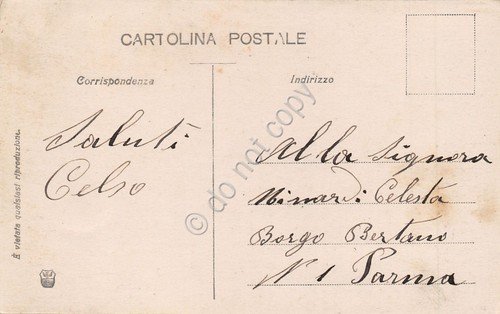 CARTOLINA POSTALE
Corrispondenza
Indirizzo
Saluti
Celso
Alla Signora
Minardi Celesta
Borgo Bertano
N 1 Parma
È vietata qualsiasi riproduzione.
© do not copy